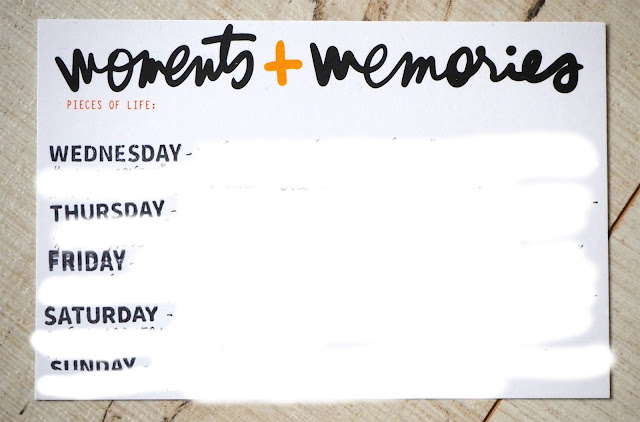 moments + memories
PIECES OF LIFE:
WEDNESDAY -
THURSDAY -
FRIDAY
SATURDAY -
SUNDAY -